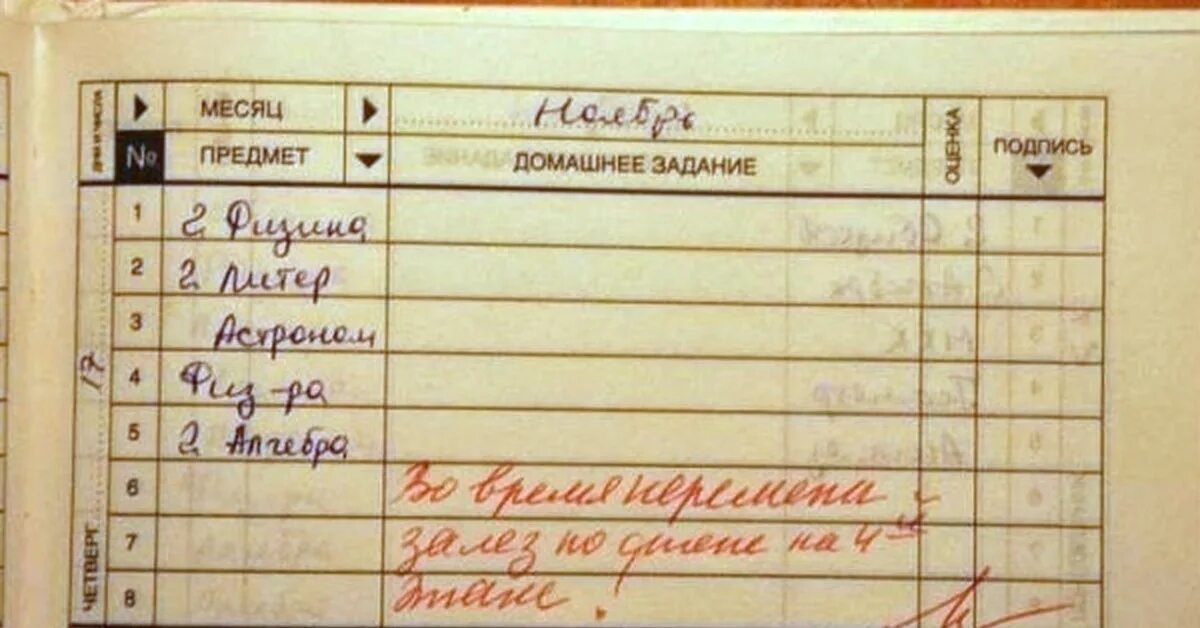 ДНИ И ЧИСЛА МЕСЯЦ Ноябрь ОЦЕНКА ПОДПИСЬ
№ ПРЕДМЕТ ДОМАШНЕЕ ЗАДАНИЕ
1 2 Физика
2 2 Литер
3 Астроном
17
4 Физ-ра
5 2 Алгебра
6 Во время перемены
7 залез по стене на 4ый
ЧЕТВЕРГ
8 этаж!